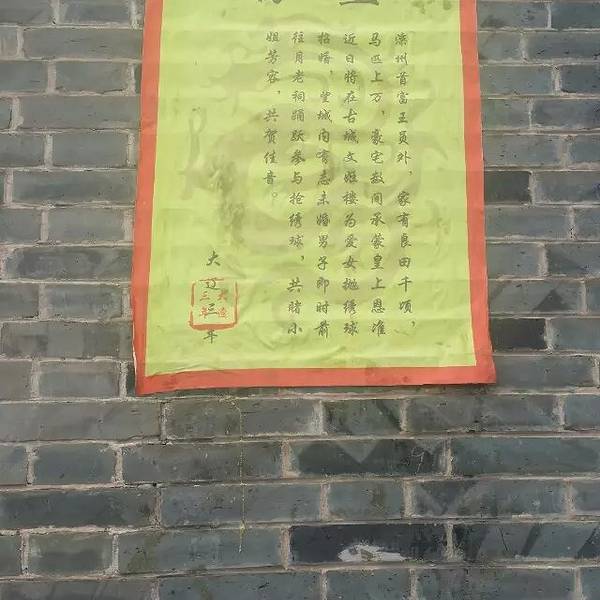 滦州首富王员外，家有良田千顷，
马匹上万，豪宅数间承蒙皇上恩准
近日将在古城文姬楼为爱女抛绣球
招婿，望城内有志未婚男子即时前
往月老祠踊跃参与抢绣球，共睹小
姐芳容，共贺佳音。
大辽三年